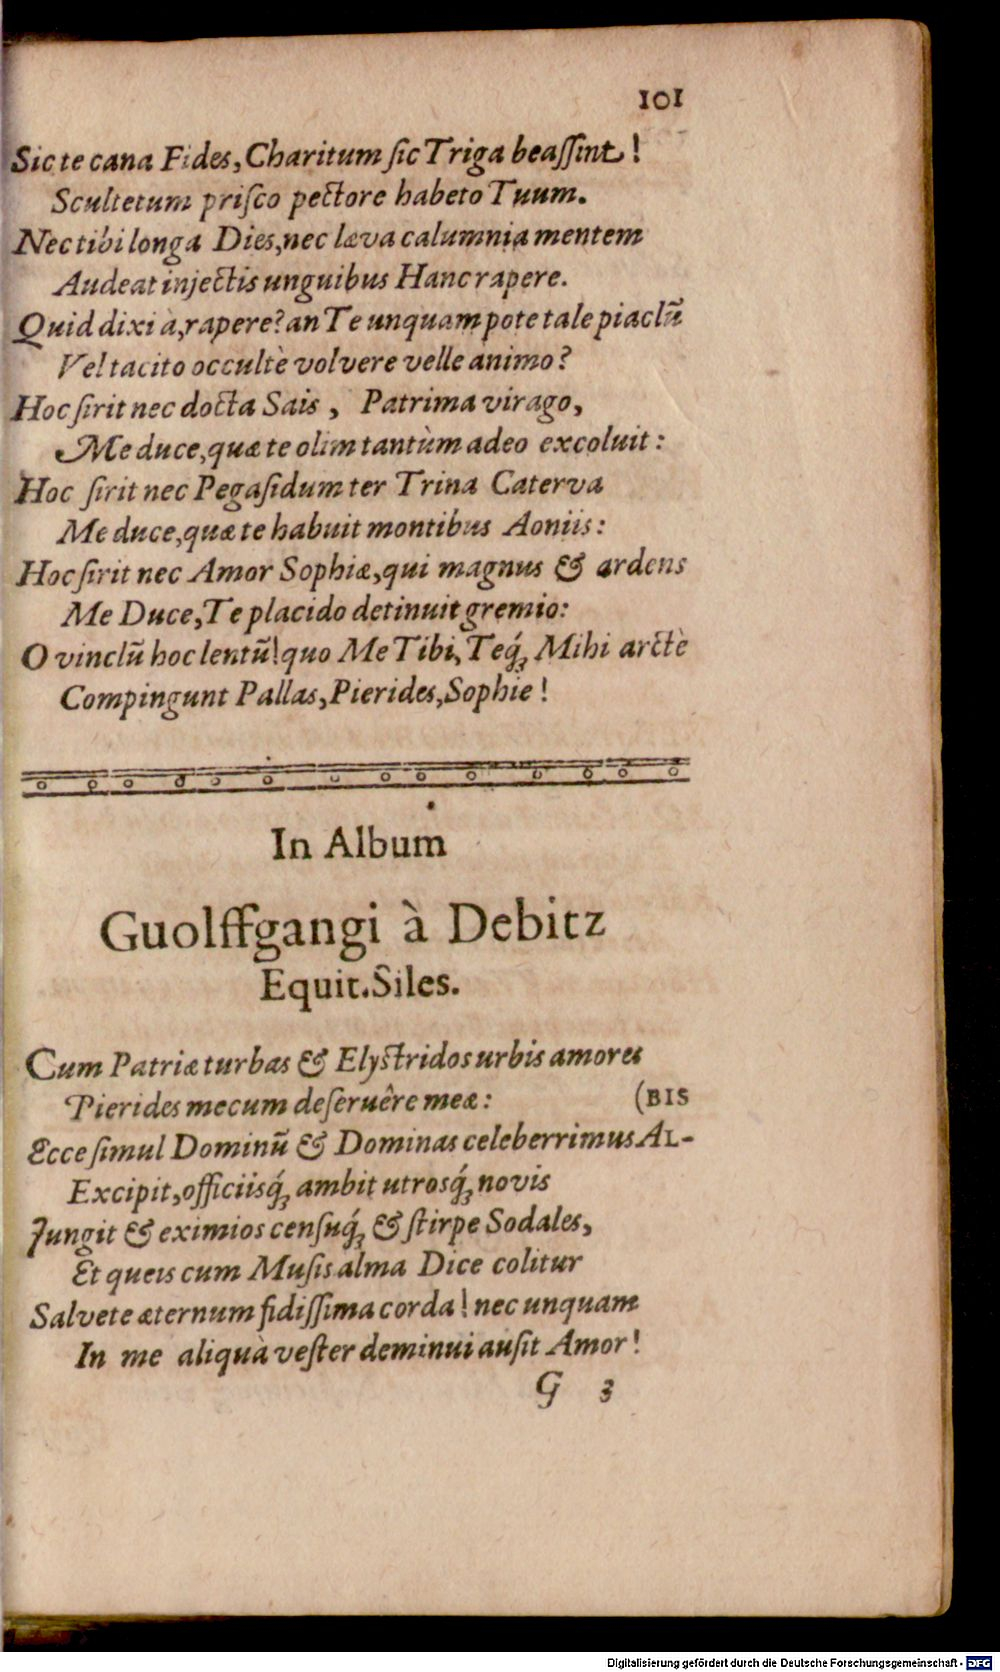 101
Sic te cana Fides, Charitum ſic Triga beaſſint!
Scultetum priſco pectore habeto Tuum.
Nec tibi longa Dies, nec læva calumnia mentem
Audeat injectis unguibus Hanc rapere.
Quid dixi à, rapere? an Te unquam pote tale piaclũ
Vel tacito occultè volvere velle animo?
Hoc ſirit nec docta Sais, Patrima virago,
Me duce, quæ te olim tantùm adeo excoluit:
Hoc ſirit nec Pegaſidum ter Trina Caterva
Me duce, quæ te habuit montibus Aoniis:
Hoc ſirit nec Amor Sophiæ, qui magnus & ardens
Me Duce, Te placido detinuit gremio:
O vinclũ hoc lentũ! quo Me Tibi, Teq́; Mihi arctè
Compingunt Pallas, Pierides, Sophie!
In Album
Guolffgangi à Debitz
Equit. Siles.
Cum Patriæ turbas & Elyſtridos urbis amores
Pierides mecum deſeruêre meæ: (BIS
Ecce ſimul Dominũ & Dominas celeberrimus AL-
Excipit, officiisq́; ambit utrosq́; novis
Jungit & eximios cenſuq́; & ſtirpe Sodales,
Et queis cum Muſis alma Dice colitur
Salvete æternum fidiſſima corda! nec unquam
In me aliquà veſter deminui auſit Amor!
G 3
Digitalisierung gefördert durch die Deutsche Forschungsgemeinschaft - DFG